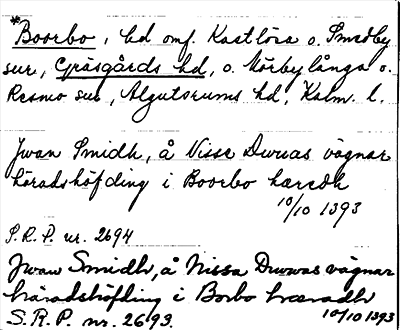 *Boorbo, hd omf. Kastlösa o. Smedby
snr, Gräsgårds hd, o. Mörbylånga o.
Resmo snr, Algutsrums hd, Kalm. l.
Jwan Smidh, å Nisse Dwuas vägnar
häradshöfding i Boorbo hæredh
10/10 1393
S.R.P. nr. 2694
Jwan Smidh, å Nissa Duwas vägnar
häradshöfding i Borbo hæradh
S.R.P. nr. 2693. 10/10 1393